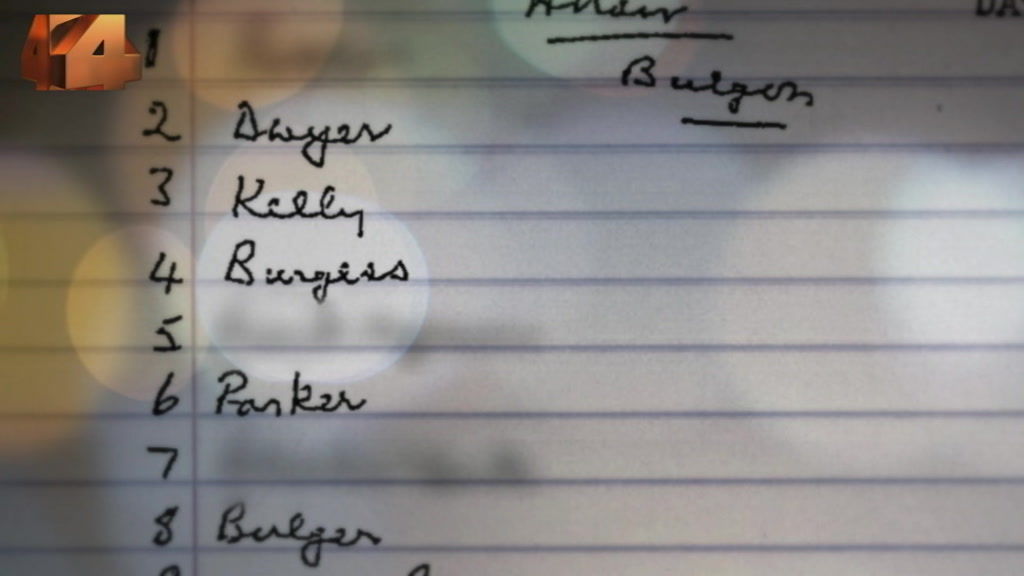 44
DA
1
Bulger
2 Dwyer
3 Kelly
4 Burgess
5
6 Parker
7
8 Bulger